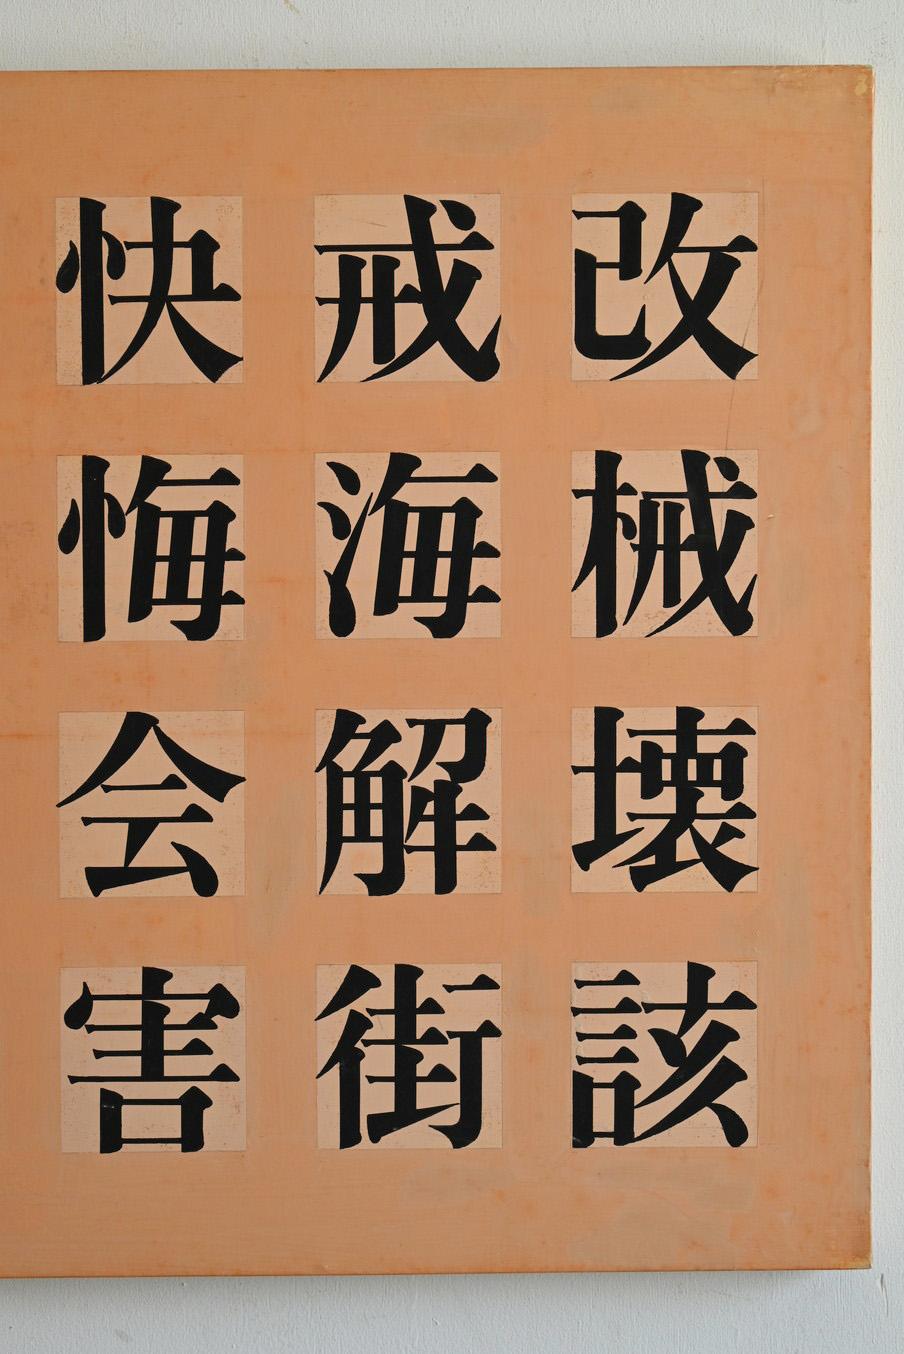 改械壊該
戒海解街
快悔会害